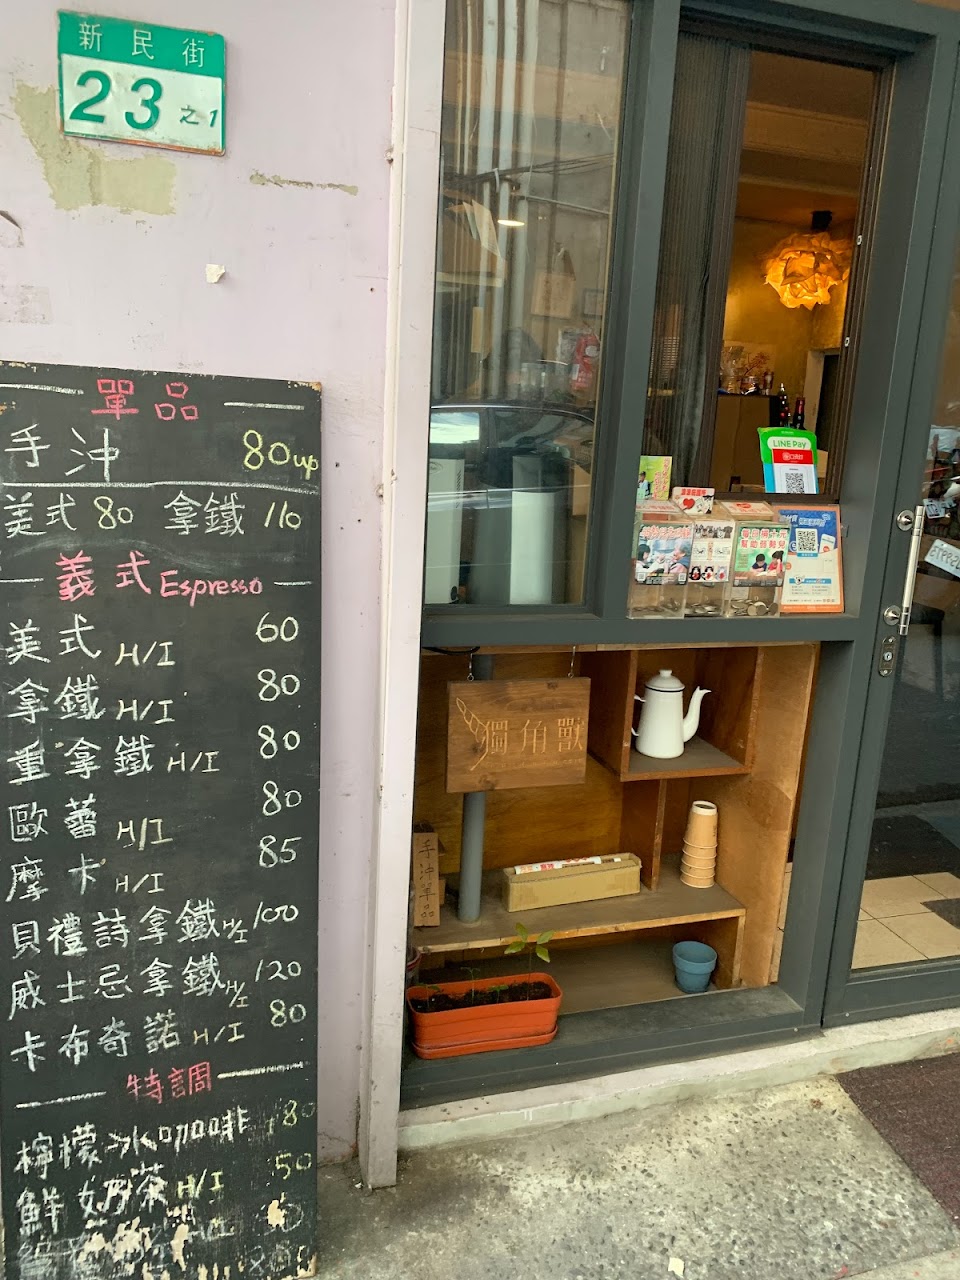 新民街
23之1
單品
手沖 80up
美式 80 拿鐵 110
義式 Espresso
美式 H/I 60
拿鐵 H/I 80
重拿鐵 H/I 80
歐蕾 H/I 80
摩卡 H/I 85
貝禮詩拿鐵 H/I 100
威士忌拿鐵 H/I 120
卡布奇諾 H/I 80
特調
檸檬冰咖啡 80
鮮奶茶 H/I 50
LINE Pay
獨角獸
手沖單品